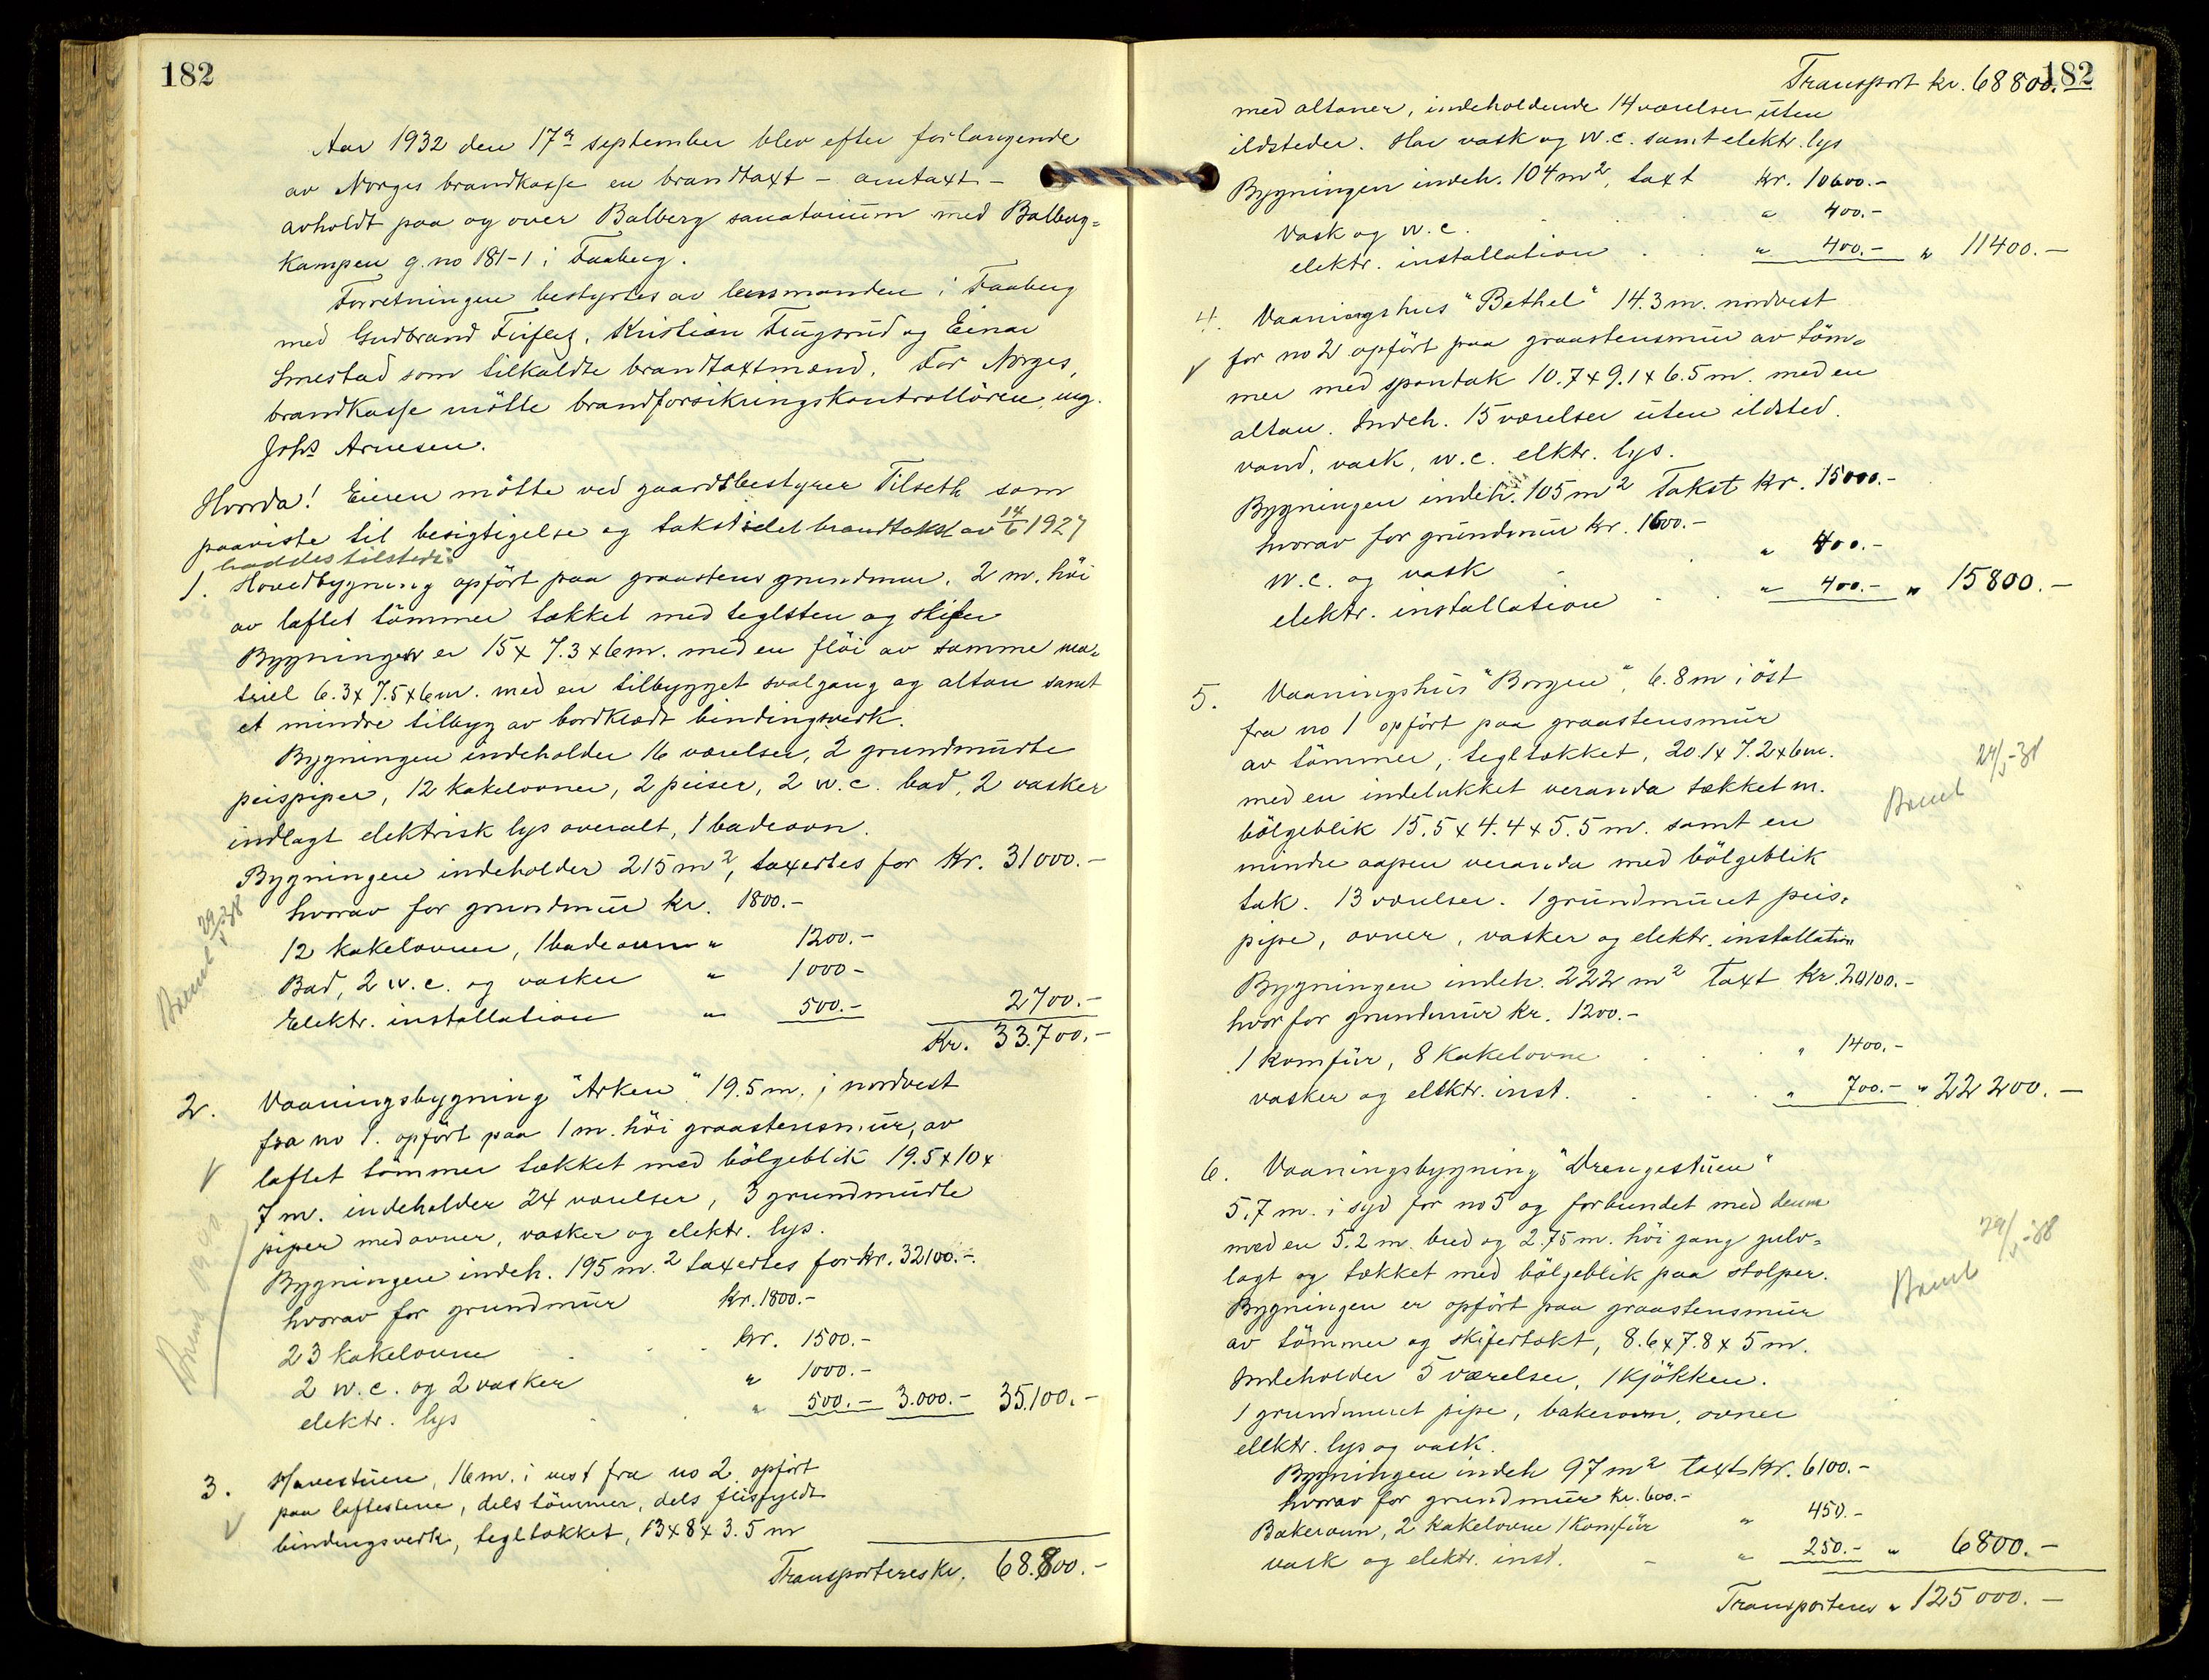 182
Aar 1932 den 17de september blev efter forlangende
av Norges brandkasse en brandtaxt - omtaxt -
avholdt paa og over Balberg sanatorium med Balberg=
kampen g. no 181-1 i Faaberg.
Forretningen bestyrtes av lensmanden i Faaberg
med Gudbrand Kristian og Einar
Smestad som tilkaldte brandtaxtmænd. For Norges
brandkasse mötte brandforsikringskontrollören, ing.
Johs Arnesen.
Hvorda! Eieren mötte ved gaardsbestyrer Tilseth som
paaviste til besigtigelse og takstidel brandtakst av 14/6 1927
haddes tilstede.
1. Hovedbygning opfört paa graastens grundmur. 2 m. höi
av laftet tömmer tækket med teglsten og skifer
Bygningen er 15 x 7.3 x 6 m. med en flöi av samme ma=
triel 6.3 x 7.5 x 6 m. med en tilbygget svalgang og altan samt
et mindre tilbyg av bordklædt bindingsverk.
Bygningen indeholder 16 værelser, 2 grundmurte
peispiper, 12 kakelovner, 2 peiser, 2 w.c. bad, 2 vasker
indlagt elektrisk lys overalt, 1 badeovn.
Bygningen indeholder 215 m2, taxertes for Kr. 31000.-
hvorav for grundmur kr. 1800.-
12 kakelovner, 1 badeovn " 1200.-
Bad, 2 w.c. og vasker " 1000-
Elektr. installation " 500.- 2700.-
Kr. 33.700.-
2. Vaaningsbygning "Arken" 19.5 m. i nordvest
fra no 1. opfört paa 1 m. höi graastensmur, av
laftet tömmer tækket med bölgeblik 19.5 x 10 x
7 m. indeholder 24 værelser, 3 grundmurte
piper med ovner, vasker og elektr. lys.
Bygningen indeh. 195 m.2 taxertes for kr. 32100.-
hvorav for grundmur kr. 1800.-
23 kakelovne . . kr. 1500.-
2 w.c. og 2 vasker " 1000.-
elektr. lys . . " 500.- 3.000.- 35.100.-
3. Havestuen, 16 m. i vest fra no 2 opfört
paa laftestene, dels tömmer, dels flisfyldt
bindingsverk, tegltækket, 13 x 8 x 3.5 m
Transporteres kr. 68.800.-
182
Transport kr. 68800.
med altaner, indeholdende 14 værelser uten
ildsteder. Har vask og W.C. samt elektr. lys
Bygningen indeh. 104 m2, taxt Kr. 10600.-
Vask og w.c. " 400.-
elektr. installation . . " 400.- " 11400.-
4. Vaaningshus "Bethel" 14.3 m. nordvest
for no 2 opfört paa graastensmur av töm=
mer med spontak 10.7 x 9.1 x 6.5 m. med en
altan. Indeh. 15 værelser uten ildsted.
vand, vask, w.c. elktr. lys.
Bygningen indeh. 105 m2 Takst kr. 15000.-
hvorav for grundmur kr. 1600.-
W.C. og vask - " 400.-
elektr. installation . . " 400.- " 15800.-
5. Vaaningshus "Borgen", 6.8 m i öst
fra no 1 opfört paa graastensmur
av tömmer, tegltækket, 20.1 x 7.2 x 6 m.
med en indelukket veranda tækket m.
bölgeblik 15.5 x 4.4 x 5.5 m. samt en
mindre aapen veranda med bölgeblik
tak. 13 værelser. 1 grundmuret peis=
pipe, ovner, vasker og elektr. installation
Bygningen indeh. 222 m2 Taxt kr. 20100.-
hvor for grundmur kr. 1200.-
1 komfür, 8 kakelovne . . " 1400.-
vasker og elektr. inst. . . " 700.- " 22 200.-
6. Vaaningsbygning "Drengestuen"
5.7 m. i syd for no 5 og forbundet med denne
med en 5.2 m. bred og 2.75 m. höi gang gulv=
lagt og tækket med bölgeblik paa stolper.
Bygningen er opfört paa graastensmur
av tömmer og skifertækt, 8.6 x 7.8 x 5 m.
Indeholder 5 værelser, 1 kjökken.
1 grundmuret pipe, bakerovn, ovner
elektr. lys og vask.
Bygningen indeh 97 m2 taxt Kr. 6100.-
hvorav for grundmur kr. 600.-
Bakerovn, 2 kakelovne 1 komfür " 450.-
vask og elektr. inst. - " 250.- " 6800.-
Transporteres " 125 000.-